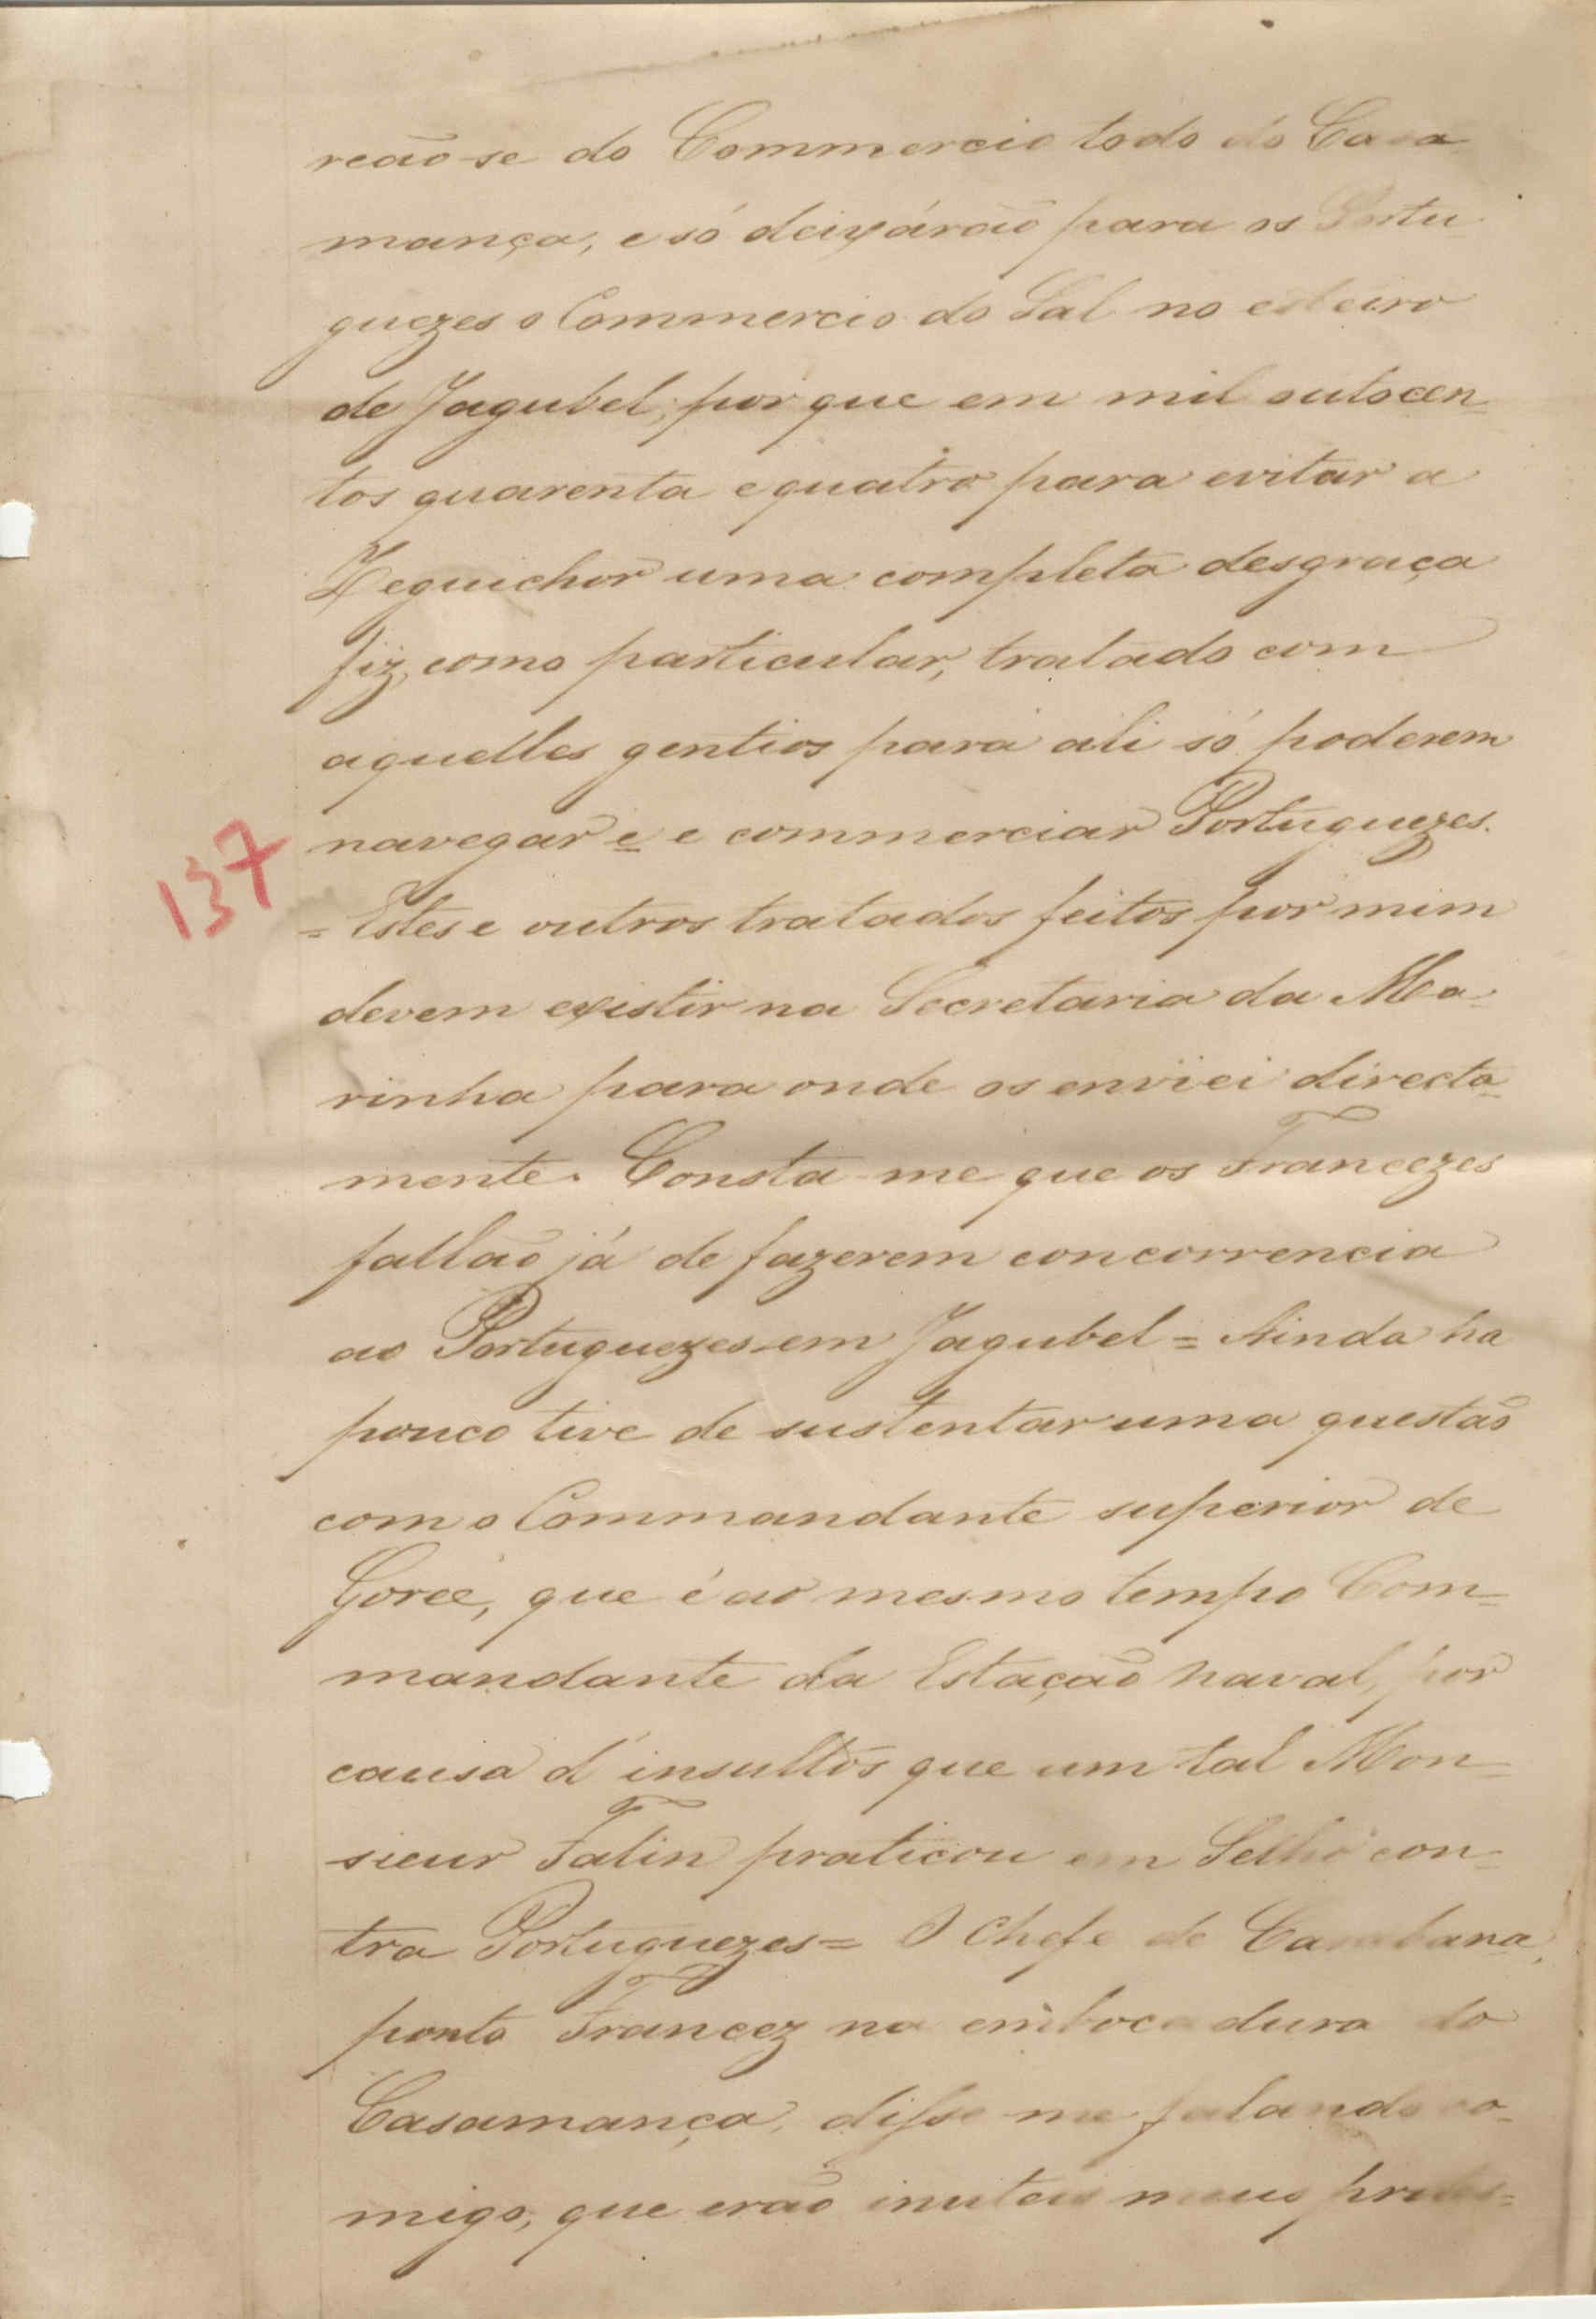 reão-se do Commercio todo do Casa-
mança, e só deixárão para os Portu-
guezes o Commercio do Sal no esteiro
de Jagubel; por que em mil outocen-
tos quarenta e quatro para evitar a
Zeguichor uma completa desgraça
fiz, como particular, tratado com
aquelles gentios para ali só poderem
navegar e e commerciar Portuguezes.
137
= Estes e outros tratados feitos por mim
devem existir na Secretaria da Ma-
rinha para onde os enviei directa-
mente. Consta-me que os Francezes
fallão já de fazerem concorrencia
ao Portuguezes em Jagubel = Ainda ha
pouco tive de sustentar uma questão
com o Commandante superior de
Gorée, que é ao mesmo tempo Com-
mandante da Estação naval, por
causa d'insultos que um tal Mon-
sieur Falin praticou em Selho con-
tra Portuguezes = O Chefe de Carabana,
ponto Francez na embocadura do
Casamança, disse me falando co-
migo, que erão inuteis meus protes-